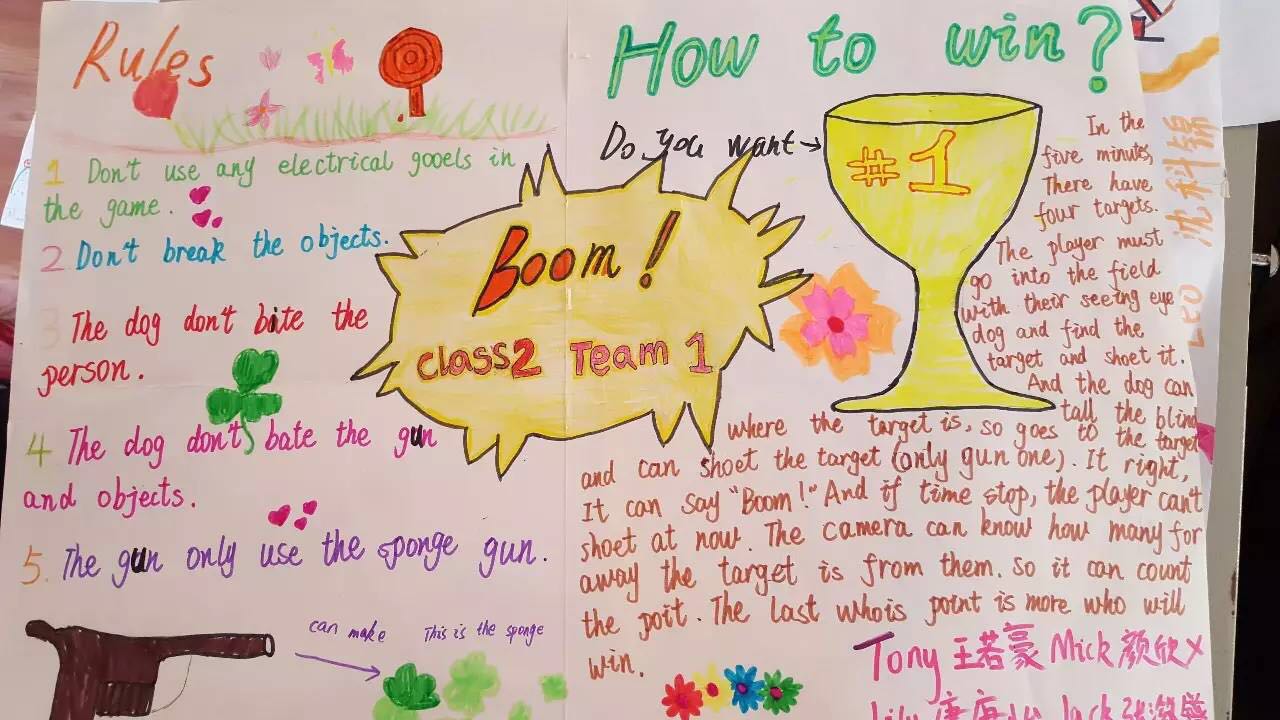 Rules
1 Don't use any electrical gooels in
the game.
2 Don't break the objects.
3 The dog don't bite the
person.
4 The dog don't bate the gun
and objects.
5. The gun only use the sponge gun.
can make This is the sponge
Boom!
Class2 Team 1
How to win?
Do you want
#1
In the
five minutes,
There have
four targets.
The player must
go into the field
with their seeing eye
dog and find the
target and shoet it.
And the dog can
tall the blind
where the target is, so goes to the target
and can shoet the target (only gun one). It right,
It can say "Boom!" And if time stop, the player can't
shoet at now. The camera can know how many for
away the target is from them. So it can count
the poit. The last whois point is more who will
win.
Tony 王若豪 Mick 颜欣
Lily Jack
沈科锦
LEO